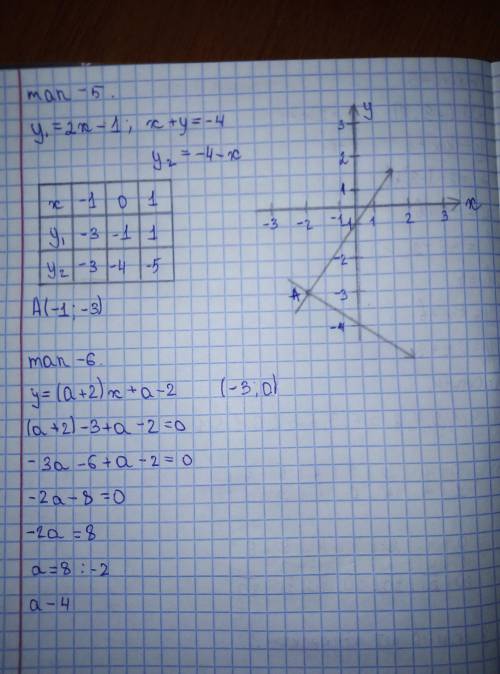 man -5.
y₁=2x-1; x+y=-4
y₂=-4-x
x -1 0 1
y₁ -3 -1 1
y₂ -3 -4 -5
A(-1; -3)
y
3
2
1
-3 -2 -1 1 2 3 x
-2
A -3
-4
man -6.
y=(a+2)x+a-2 (-3; 0)
(a+2)-3+a-2=0
-3a-6+a-2=0
-2a-8=0
-2a=8
a=8:-2
a-4